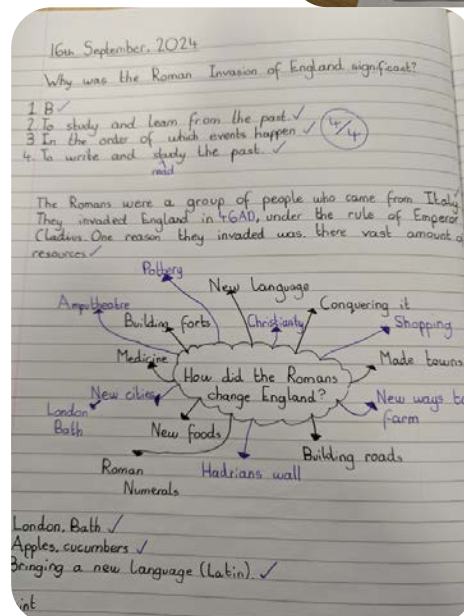 16th September, 2024
Why was the Roman Invasion of England significant?
1 B ✓
2. To study and learn from the past. ✓
3 In the order of which events happen ✓ 4/4
4. To write and study the past. ✓
read
The Romans were a group of people who came from Italy.
They invaded England in 46AD, under the rule of Emperor
Cladius. One reason they invaded was there vast amount of
resources ✓
Pottery
New Language
Amputheatre
Building forts
Christianty
Conquering it
Shopping
Medicine
How did the Romans
change England?
Made towns
New cities
London
Bath
New ways to
farm
New foods
Building roads
Roman
Numerals
Hadrians wall
London, Bath ✓
Apples, cucumbers ✓
Bringing a new language (Latin). ✓